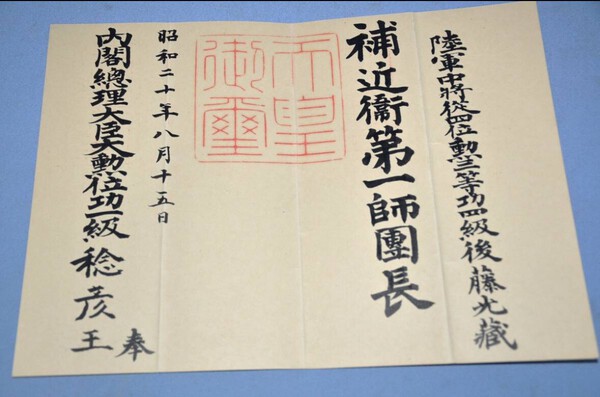 陸軍中將從四位勳二等功四級後藤光藏
補近衞第一師團長
天皇御璽
昭和二十年八月十五日
內閣總理大臣大勳位功一級稔彥王奉